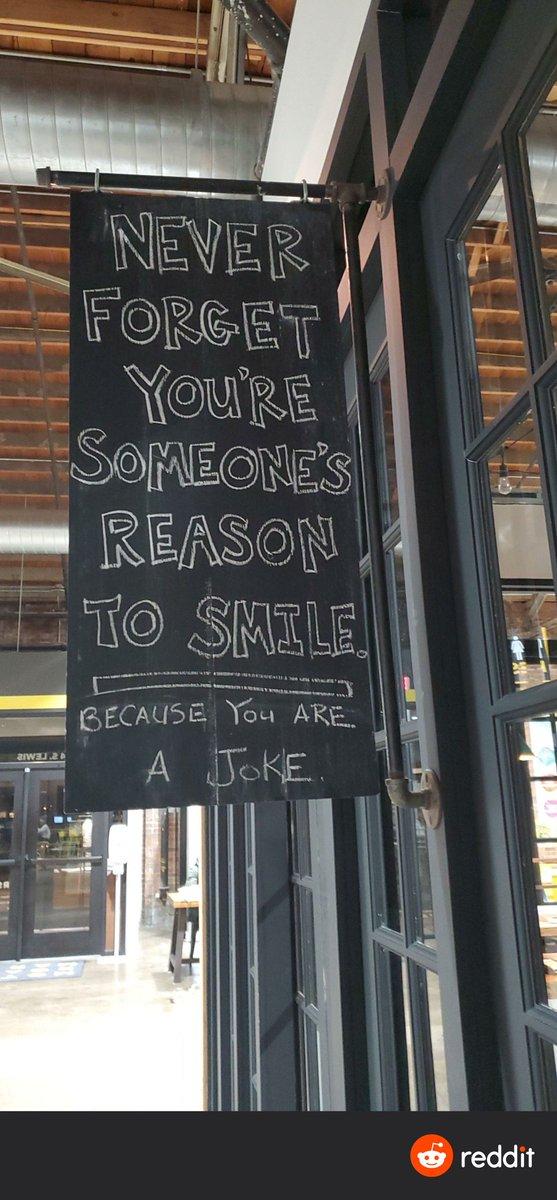 NEVER
FORGET
YOU'RE
SOMEONE'S
REASON
TO SMILE.
BECAUSE YOU ARE
A JOKE.
4 S. LEWIS
reddit